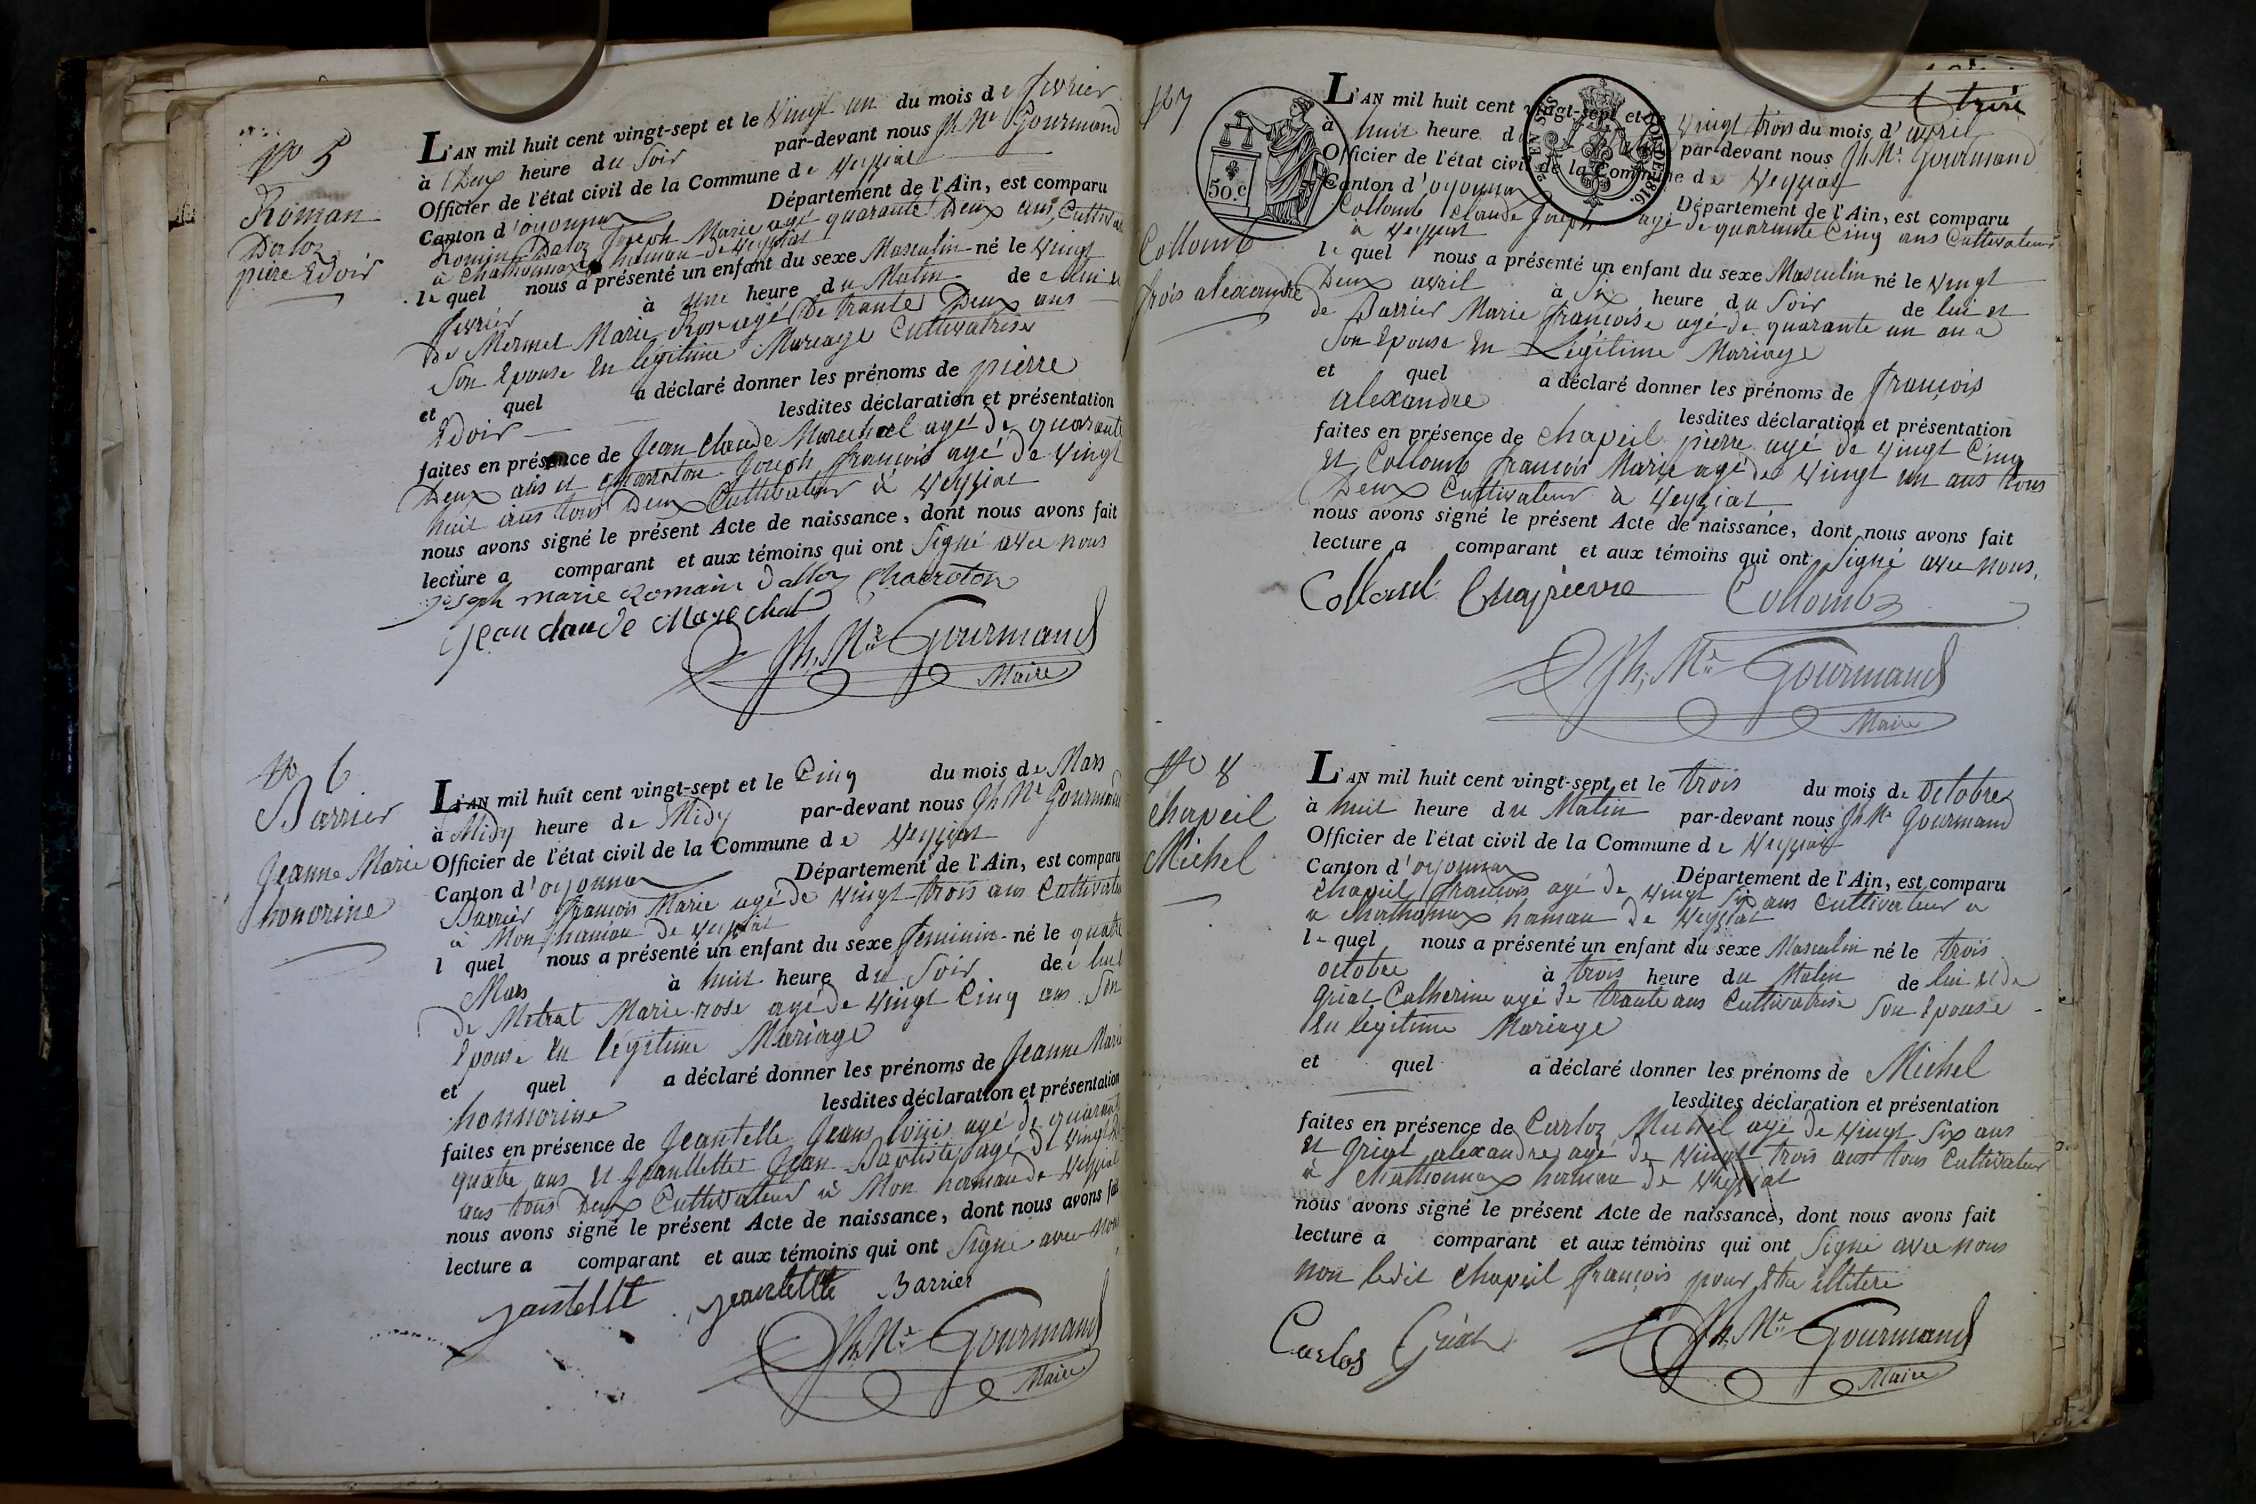 N° 5
Roman
Daloz
pierre Edoir
L'AN mil huit cent vingt-sept et le Vingt un du mois de fevrier
à Deux heure du Soir par-devant nous Jh Me Gourmand
Officier de l'état civil de la Commune de Veyziat
Canton d'oyonnax Département de l'Ain, est comparu
Romin Daloz Joseph Marie agé quarante Deux ans, Cultivat
à Chatonnax hamau de Veyziat
le quel nous a présenté un enfant du sexe Masculin né le Vingt
fevrier à une heure du Matin de e lui et
de Mermet Marie Rose agé De trante Deux ans
Son Epouse En legitime Mareage Cultivatrise
et quel a déclaré donner les prénoms de pierre
Edoir lesdites déclaration et présentation
faites en présence de Jean Claude Marechal agé De quarante
Deux ans et Charoton Joseph françois agé De Vingt
huit ans tous Deux Cultivateur à Veyziat
nous avons signé le présent Acte de naissance, dont nous avons fait
lecture a comparant et aux témoins qui ont Signé avec nous
joseph marie Romain dalloz Charoton
jean claude Marechal
Jh. Me Gourmand
Maire
N° 6
Barrier
Jeanne Marie
honorine
L'AN mil huit cent vingt-sept et le Cinq du mois de Mars
à Midy heure de Midy par-devant nous Jh Me Gourmand
Officier de l'état civil de la Commune de Veyziat
Canton d'oyonnax Département de l'Ain, est comparu
Barrier françois Marie agé de Vingt trois ans Cultivateu
à Mon hamau de Veyziat
l quel nous a présenté un enfant du sexe feminin né le quatre
Mars à huit heure du Soir de e lui et
de Metral Marie rose agé de Vingt Cinq ans Son
Epouse En legitime Mariage
et quel a déclaré donner les prénoms de Jeanne Marie
honnorine lesdites déclaration et présentation
faites en présence de Jeantelle Jean louis agé de quarante
quatre ans et Jeantelle Jean Baptiste agé de Vingt
ans tous Deux Cultivateur à Mon hamau de Veyziat
nous avons signé le présent Acte de naissance, dont nous avons fait
lecture a comparant et aux témoins qui ont Signé avec nous
jantellt jeantelle Barrier
Jh. Me Gourmand
Maire
N° 7
Collomb
frois alexandre
50. c
EN SUS
LOI DE 1816.
L'AN mil huit cent vingt-sept et le Vingt trois du mois d'avril
à huit heure d par-devant nous Jh Me Gourmand
Officier de l'état civil de la Commune de Veyziat
Canton d'oyonnax Département de l'Ain, est comparu
Collomb Claude Joseph agé De quarante Cinq ans Cultivateur
à Veyziat
le quel nous a présenté un enfant du sexe Masculin né le Vingt
Deux avril à Six heure du Soir de lui et
de Barrier Marie françoise agé de quarante un ans
Son Epouse En Légitime Mariage
et quel a déclaré donner les prénoms de françois
alexandre lesdites déclaration et présentation
faites en présence de Chapeil pierre agé de Vingt Cinq
et Collomb françois Marie agé de Vingt un ans tous
Deux Cultivateur à Veyziat
nous avons signé le présent Acte de naissance, dont nous avons fait
lecture a comparant et aux témoins qui ont Signé avec nous,
Collomb Chapierre Collomb
Jh. Me Gourmand
Maire
N° 8
Chapeil
Michel
L'AN mil huit cent vingt-sept et le trois du mois de Octobre
à huit heure du Matin par-devant nous Jh Me Gourmand
Officier de l'état civil de la Commune de Veyziat
Canton d'oyonnax Département de l'Ain, est comparu
Chapeil françois agé de Vingt Six ans Cultivateur a
a Chatonnax hamau de Veyziat
le quel nous a présenté un enfant du sexe Masculin né le trois
octobre à trois heure du Matin de lui et de
Griat Catherine agé de trante ans Cultivatrise Son Epouse
En legitime Mariage
et quel a déclaré donner les prénoms de Michel
lesdites déclaration et présentation
faites en présence de Carloz Michel agé de Vingt Six ans
et Griat alexandre agé de Vingt trois ans tous Cultivateur
a Chatonnax hamau de Veyziat
nous avons signé le présent Acte de naissance, dont nous avons fait
lecture a comparant et aux témoins qui ont Signé avec nous
non ledit Chapeil françois pour Etre illiteré
Carlos Griat
Jh. Me Gourmand
Maire